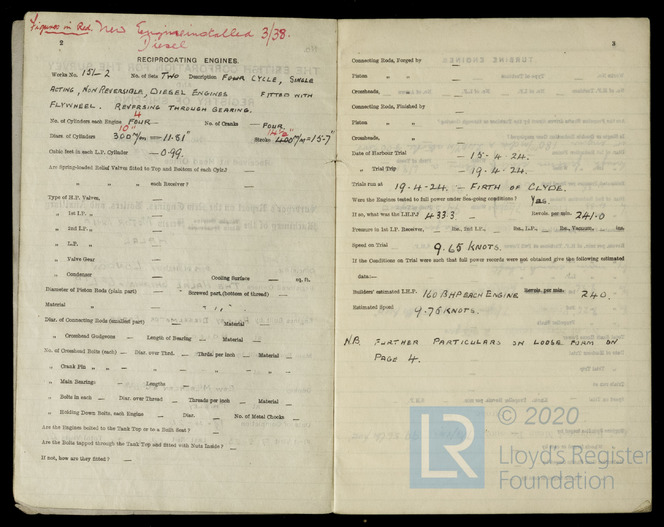 Figures in Red New Engine installed 3/38.
Diesel
2
RECIPROCATING ENGINES.
Works No. 151-2 No. of Sets TWO Description FOUR CYCLE, SINGLE
ACTING, NON REVERSIBLE, DIESEL ENGINES FITTED WITH
FLYWHEEL. REVERSING THROUGH GEARING.
4
No. of Cylinders each Engine FOUR — No. of Cranks — FOUR.
10" 14½"
Diars. of Cylinders 300 m/m = 11·81" Stroke 400 m/m = 15·7"
Cubic feet in each L.P. Cylinder — 0·99.
Are Spring-loaded Relief Valves fitted to Top and Bottom of each Cylr.? —
" " " each Receiver? —
Type of H.P. Valves, —
" 1st I.P. " —
" 2nd I.P. " —
" L.P. " —
" Valve Gear —
" Condenser — Cooling Surface — sq. ft.
Diameter of Piston Rods (plain part) — Screwed part (bottom of thread) —
Material " —
Diar. of Connecting Rods (smallest part) — Material —
" Crosshead Gudgeons — Length of Bearing — Material —
No. of Crosshead Bolts (each) — Diar. over Thrd. — Thrds. per inch — Material —
" Crank Pin " " — " — " — " —
" Main Bearings — Lengths —
" Bolts in each — Diar. over Thread — Threads per inch — Material —
" Holding Down Bolts, each Engine — Diar. — No. of Metal Chocks —
Are the Engines bolted to the Tank Top or to a Built Seat? —
Are the Bolts tapped through the Tank Top and fitted with Nuts Inside? —
If not, how are they fitted? —
3
Connecting Rods, Forged by —
Piston " " —
Crossheads, " —
Connecting Rods, Finished by —
Piston " " —
Crossheads, " —
Date of Harbour Trial — 15·4·24.
" Trial Trip — 19·4·24.
Trials run at 19·4·24. — FIRTH OF CLYDE.
Were the Engines tested to full power under Sea-going conditions? Yes.
If so, what was the I.H.P.? 433·3 Revols. per min. 241·0
Pressure in 1st I.P. Receiver, — lbs., 2nd I.P., — lbs., L.P., — lbs., Vacuum, — ins.
Speed on Trial 9.65 KNOTS.
If the Conditions on Trial were such that full power records were not obtained give the following estimated
data:—
Builders' estimated I.H.P. 160 BHP EACH ENGINE Revols. per min. 240.
Estimated Speed 9·75 KNOTS.
N.B. FURTHER PARTICULARS ON LOOSE FORM ON
PAGE 4.
© 2020
LR
Lloyd's Register
Foundation